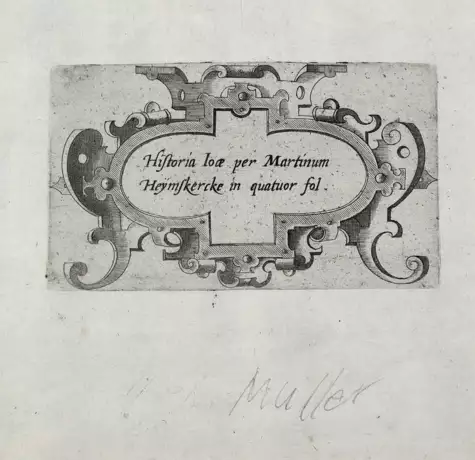 Hiſtoria Ioæ per Martinum
Heÿmſkercke in quatuor fol.
Muller